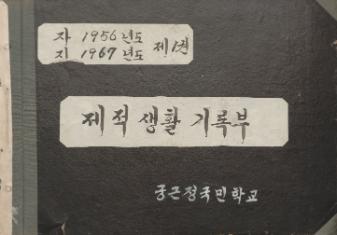 자 1956년도
지 1967년도 제1권
제적 생활 기록부
궁근정국민학교